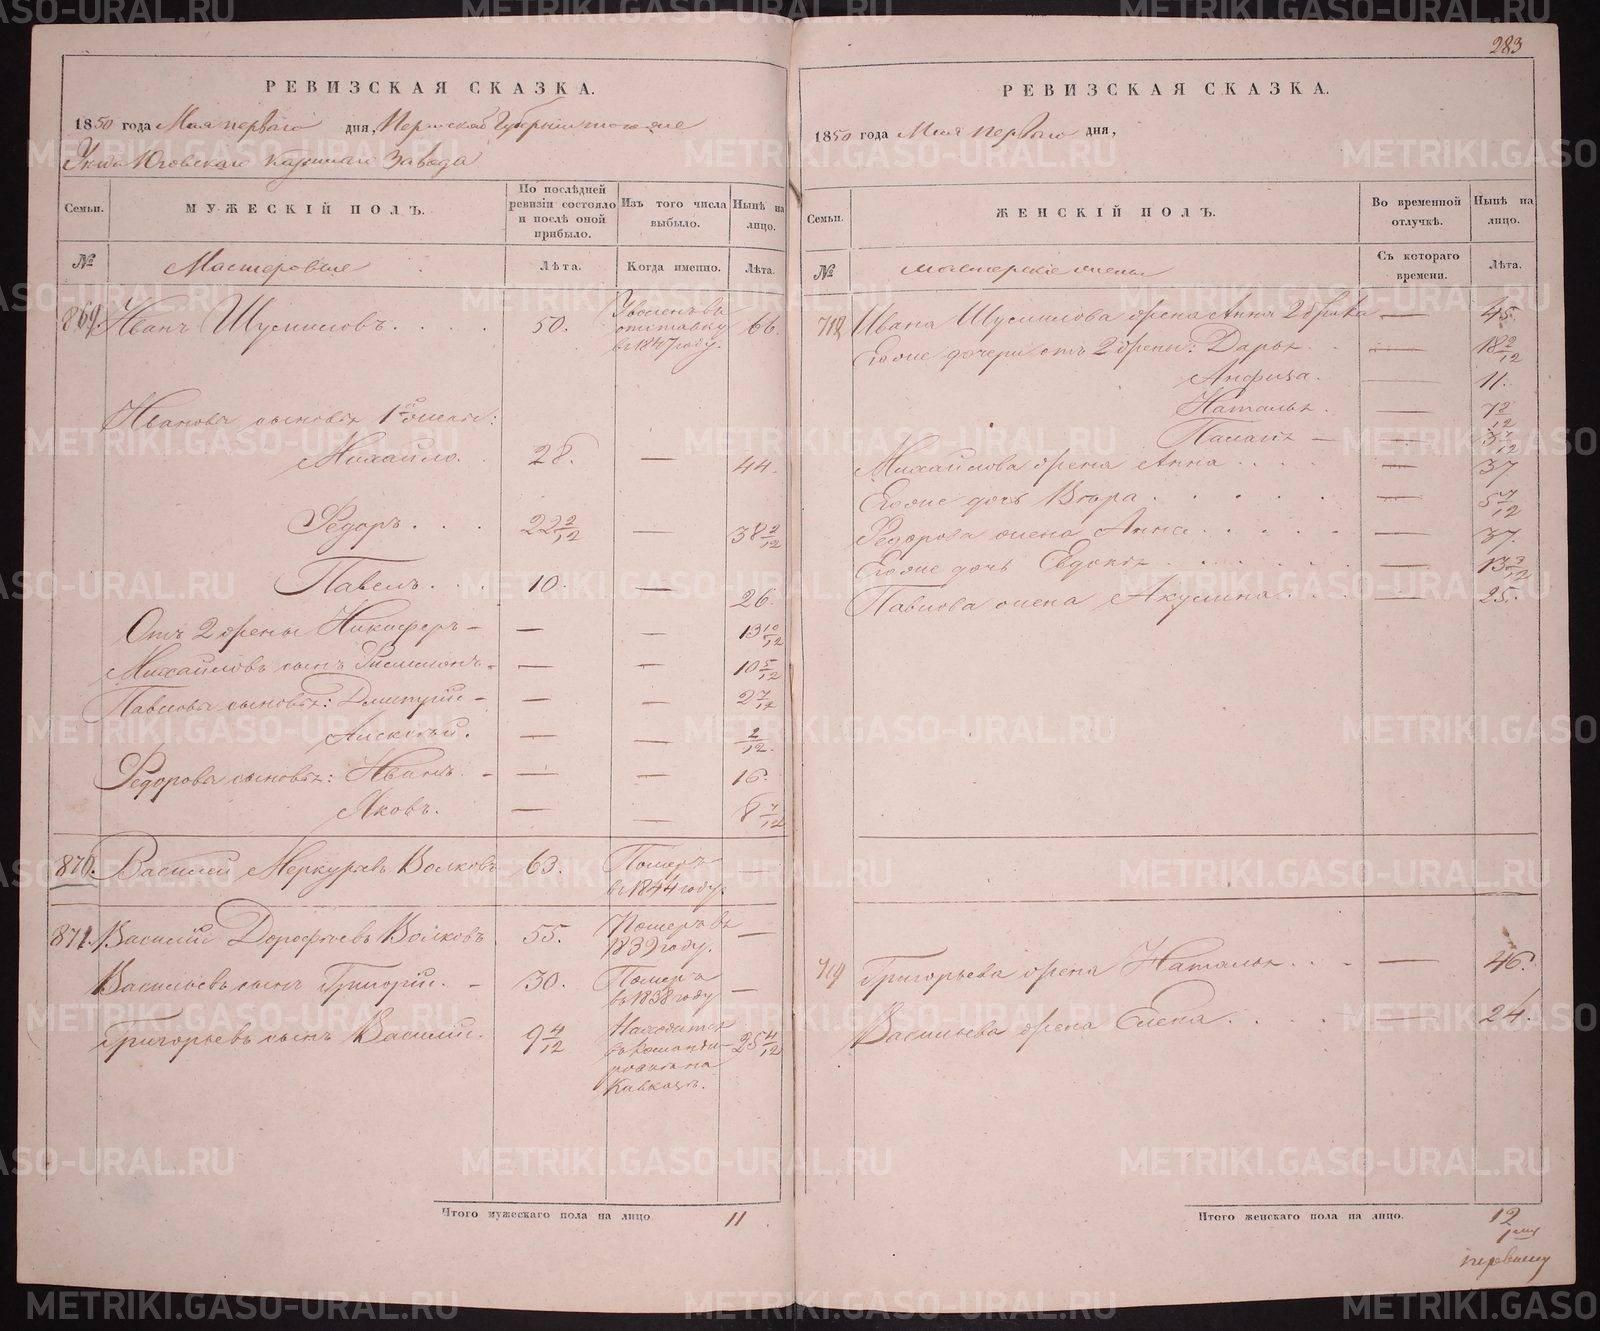 283
РЕВИЗСКАЯ СКАЗКА.
1850 года Мая первого дня, Пермской Губернии тоже
Юговскаго казеннаго Завода
Семьи. МУЖЕСКІЙ ПОЛЪ. По послѣдней ревизіи состояло и послѣ оной прибыло. Изъ того числа выбыло. Нынѣ на лицо.
№ Мастеровые Лѣта. Когда именно. Лѣта.
869. Иванъ Шусмиловъ. 50. Уволенъ въ отставку въ 1847 году. 66.
Ивановы сыновья 1й жены:
Михайло. 28. — 44.
Федоръ. 22 2/12 — 38 2/12
Павелъ. 10. — 26.
Отъ 2 жены Никифоръ — — — 13 10/12
Михайловъ сынъ Филимонъ — — — 10 5/12
Павловы сыновья: Дмитрій — — — 2 7/12
Алексѣй. — — 2/12.
Федоровы сыновья: Иванъ. — — — 16.
Яковъ. — — 8 7/12
870. Василій Меркурьевъ Волковъ 63. Померъ въ 1844 году. —
871. Василій Дорофѣевъ Волковъ 55. Померъ въ 1839 году. —
Васильевъ сынъ Григорій. — 30. Померъ въ 1838 году —
Григорьевъ сынъ Василій. 9 4/12 Находится въ командировкѣ на Кавказѣ. 25 4/12
Итого мужескаго пола на лицо 11
РЕВИЗСКАЯ СКАЗКА.
1850 года Мая первого дня,
Семьи. ЖЕНСКІЙ ПОЛЪ. Во временной отлучкѣ. Нынѣ на лицо.
№ Съ котораго времени. Лѣта.
718 Ивана Шусмилова жена Анна 2 брака — 45.
Его же дочери отъ 2 жены: Дарья — 18 2/12
Анфиса. — 11.
Наталья. — 7 2/12
Палагія — —
Михайлова жена Анна — 37
Его же дочь Вѣра — 5 7/12
Федорова жена Анна — 37.
Его же дочь Евдокія — 13 3/12
Павлова жена Акулина — 25.
719 Григорьева жена Наталья — 46.
Васильева жена Елена — 24.
Итого женскаго пола на лицо. 12
METRIKI.GASO-URAL.RU